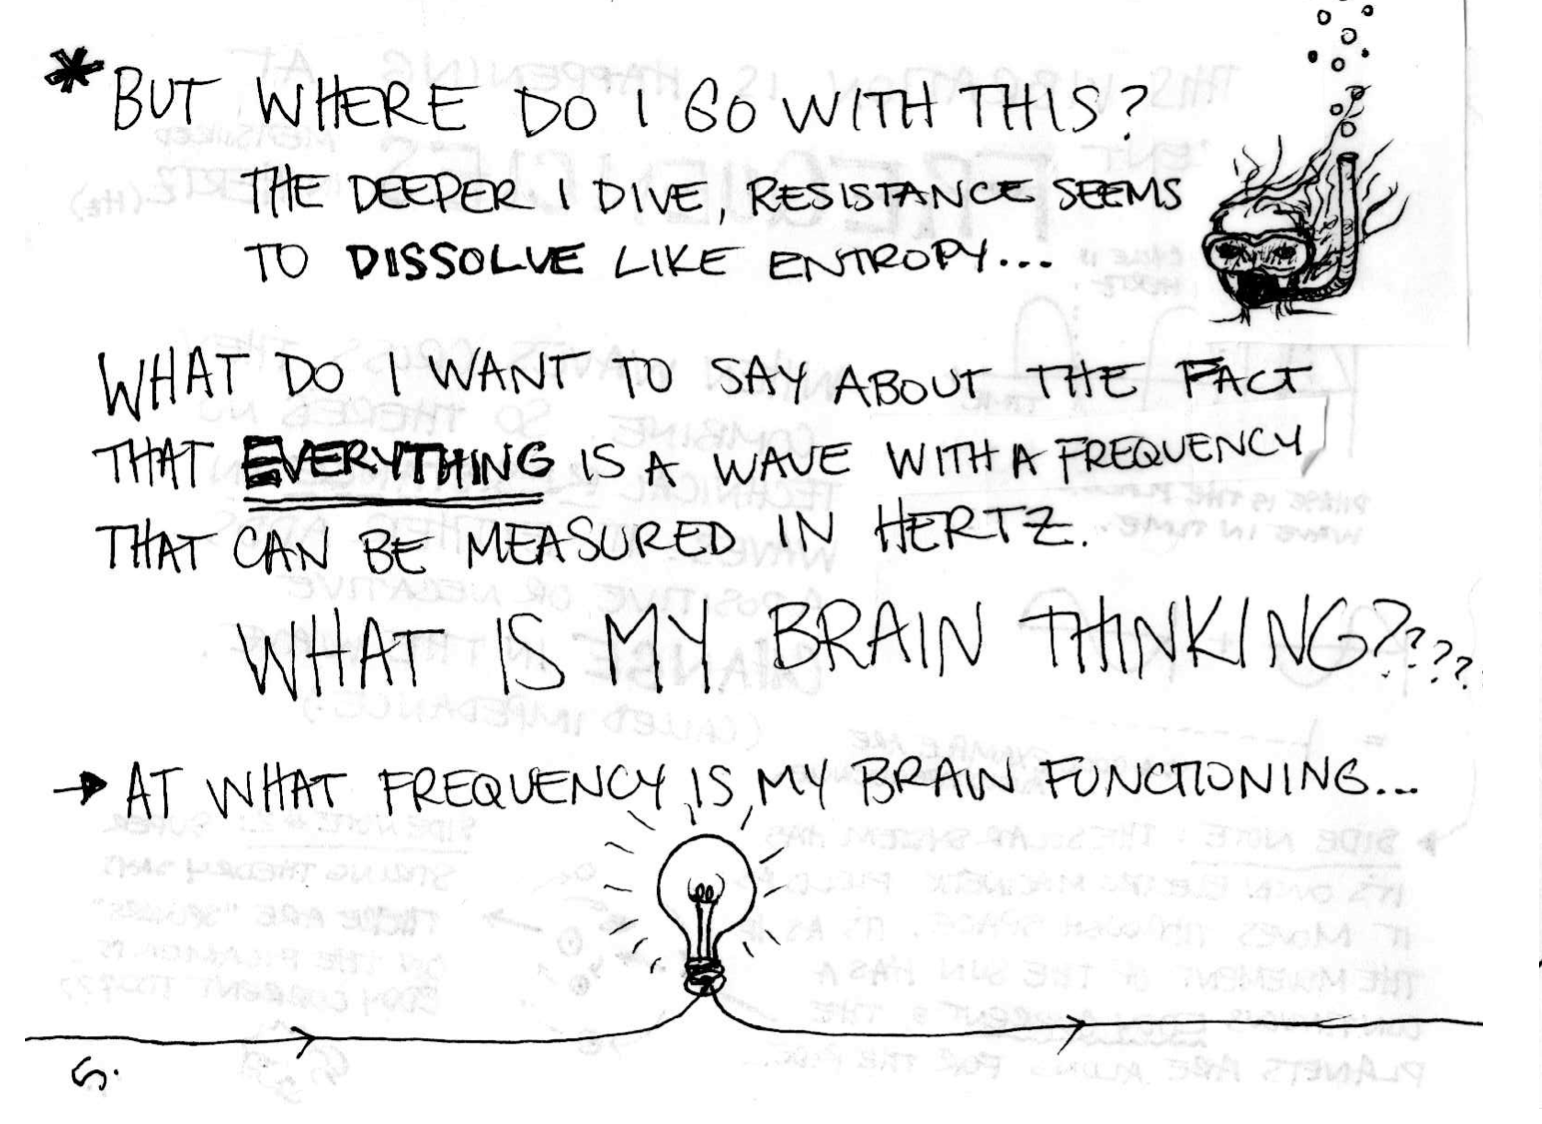 * BUT WHERE DO I GO WITH THIS?
THE DEEPER I DIVE, RESISTANCE SEEMS
TO DISSOLVE LIKE ENTROPY...
WHAT DO I WANT TO SAY ABOUT THE FACT
THAT EVERYTHING IS A WAVE WITH A FREQUENCY
THAT CAN BE MEASURED IN HERTZ.
WHAT IS MY BRAIN THINKING????
→ AT WHAT FREQUENCY IS MY BRAIN FUNCTIONING...
5.